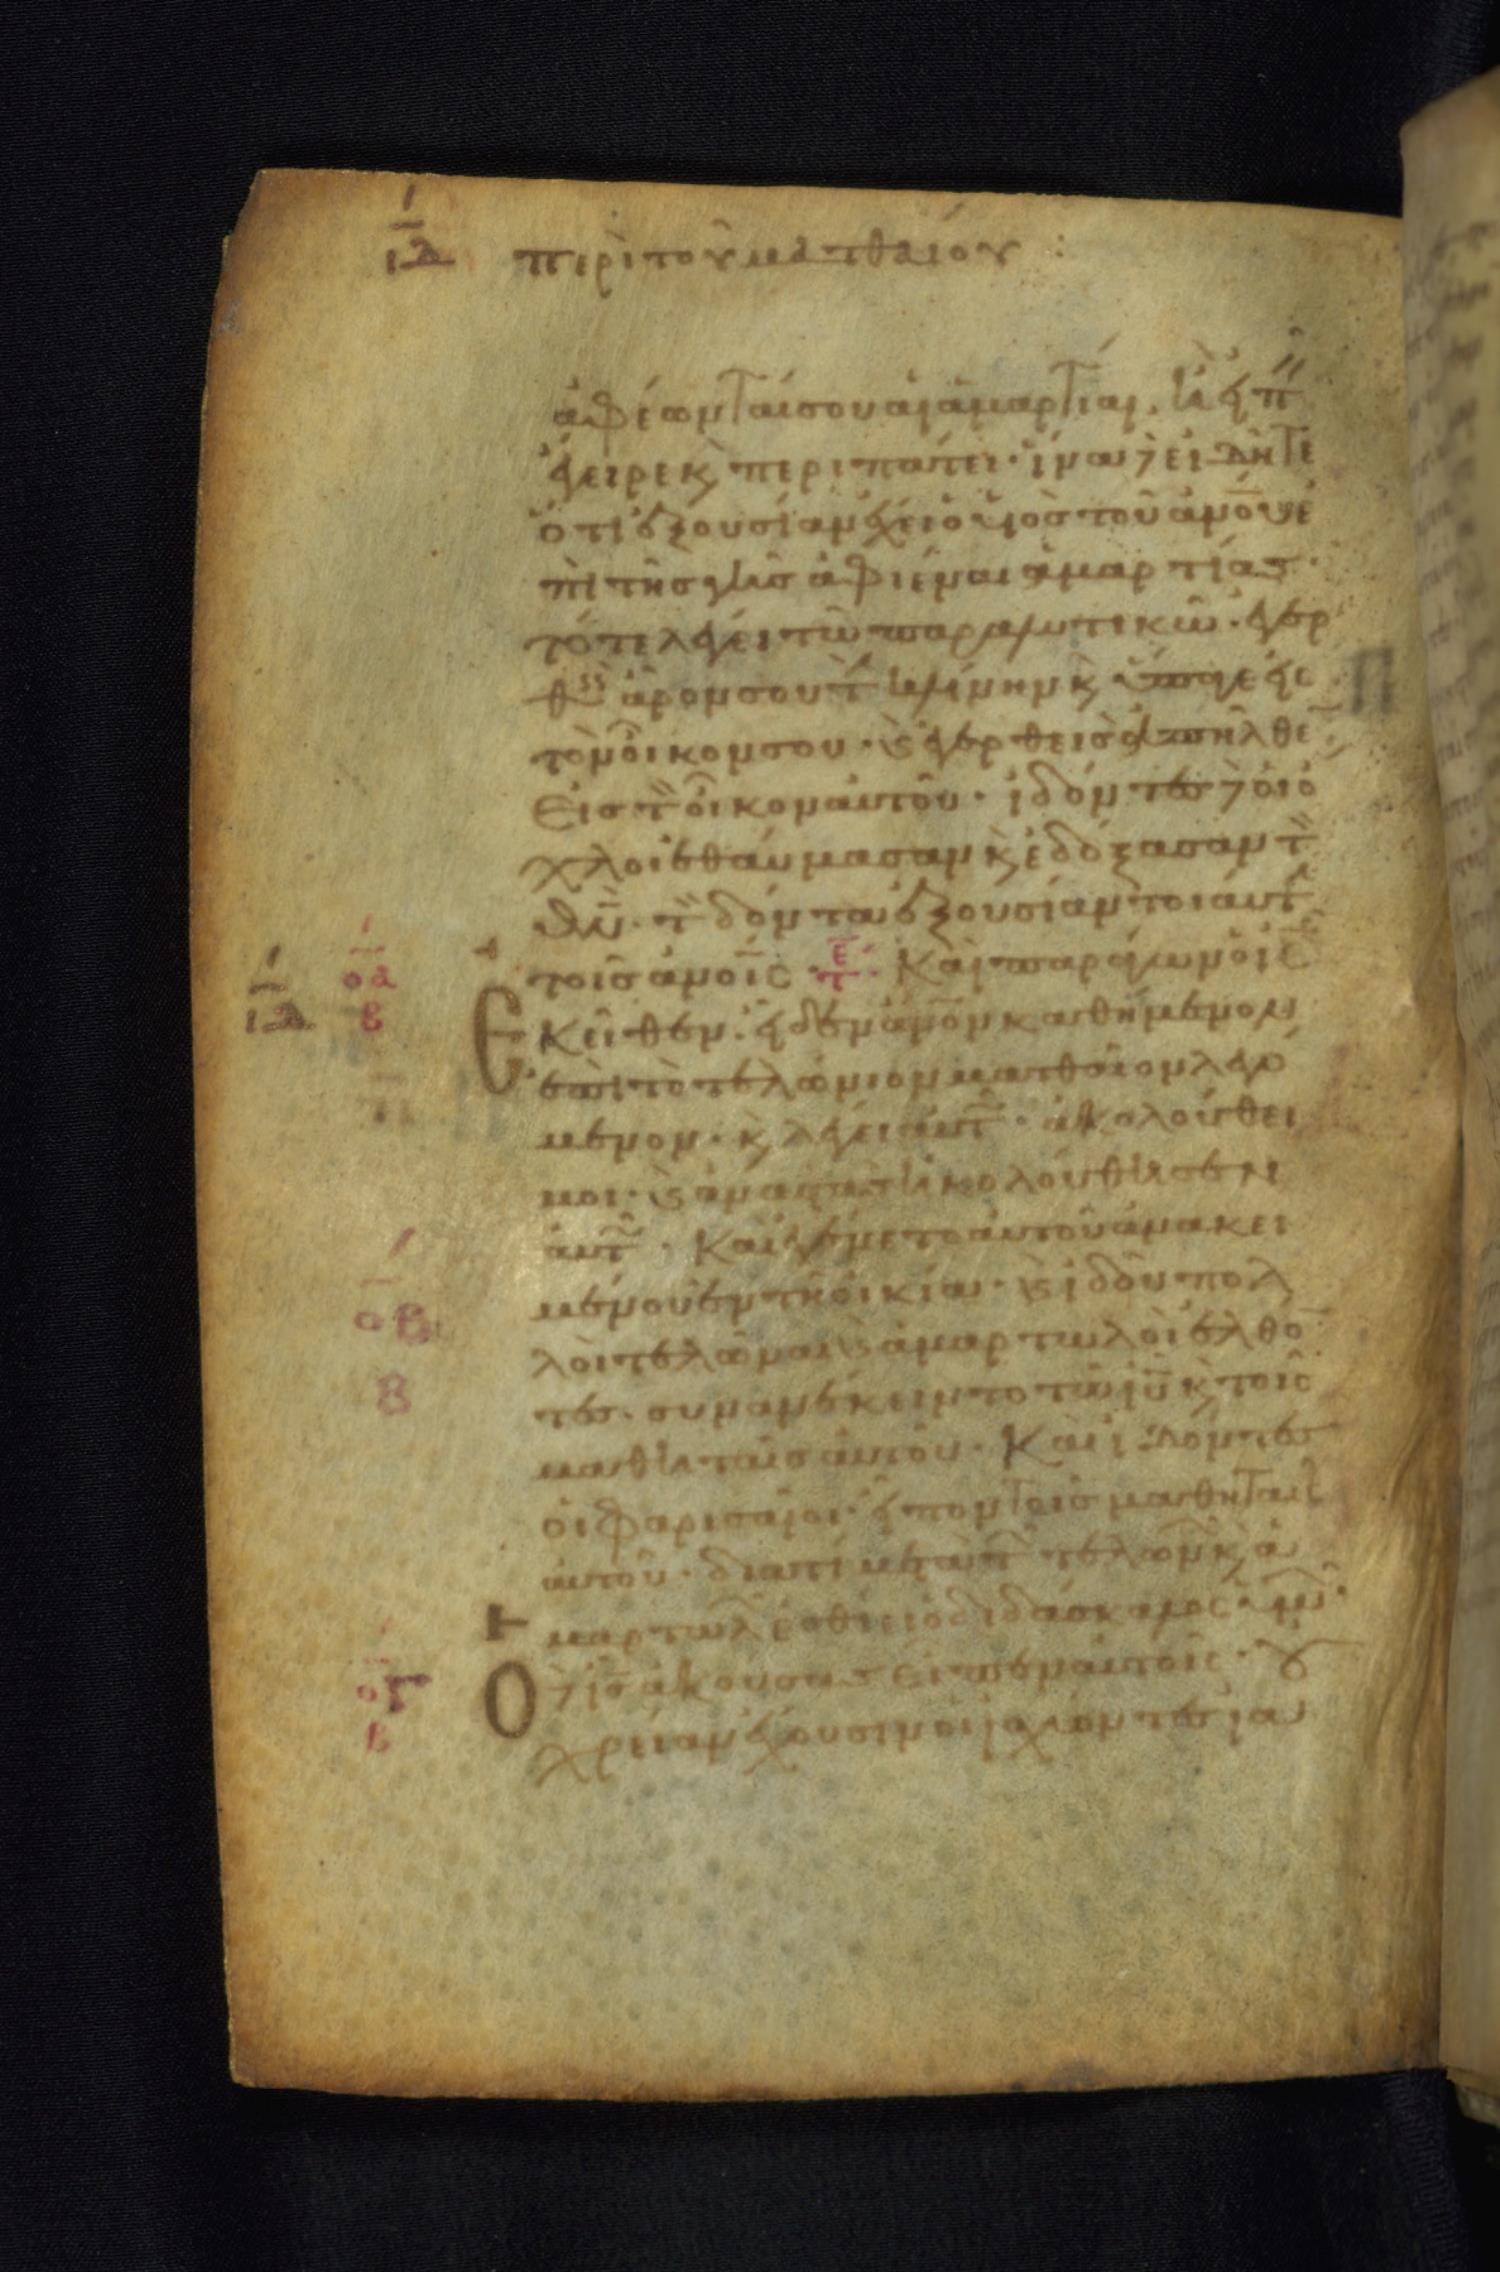 ιδ περὶ τοῦ ματθαίου :
ἀφέωνταί σου αἱ ἁμαρτίαι. ἢ εἰπ
ἔγειρε κ περιπάτει· ἵνα δὲ εἰδῆτε
ὅτι ἐξουσίαν ἔχει ὁ υἱὸς τοῦ ἀνου ἐ
πὶ τῆς γῆς ἀφιέναι ἁμαρτίας·
τότε λέγει τῶ παραλυτικῶ· ἐγερ
θεὶς ἆρόν σου τ κλίνην κ ὕπαγε εἰς
τὸν οἶκον σου· κ ἐγερθεὶς ἀπῆλθε
εἰς τ οἶκον αὐτοῦ· ἰδόντες δὲ οἱ ὄ
χλοι ἐθαύμασαν κ ἐδόξασαν τ
θν· τ δόντα ἐξουσίαν τοιαύτ
τοῖς ἀνοις· τε Καὶ παράγων ὁ ις
οα
β
ιδ
Ἐκεῖθεν· εἶδεν ἀνον καθήμενον
ἐπὶ τὸ τελώνιον ματθαῖον λεγό
μενον· κ λέγει αὐτ· ἀκολούθει
μοι· κ ἀναστὰς ἠκολούθησεν
αὐτ· Καὶ ἐγένετο αὐτοῦ ἀνακει
μένου ἐν τῆ οἰκία· κ ἰδοὺ πολ
οβ
λοὶ τελῶναι κ ἁμαρτωλοὶ ἐλθό
β
τες· συνανέκειντο τῶ ιυ κ τοῖς
μαθηταῖς αὐτοῦ· Καὶ ἰδόντες
οἱ φαρισαῖοι· εἶπον τοῖς μαθηταῖς
αὐτοῦ· διατί μετὰ τ τελων κ ἁ
μαρτωλ ἐσθίει ὁ διδάσκαλος ὑμων·
ογ
β
Ὁ δὲ ις ἀκούσας εἶπεν αὐτοῖς· οὐ
χρείαν ἔχουσιν οἱ ἰσχύοντες ἰα